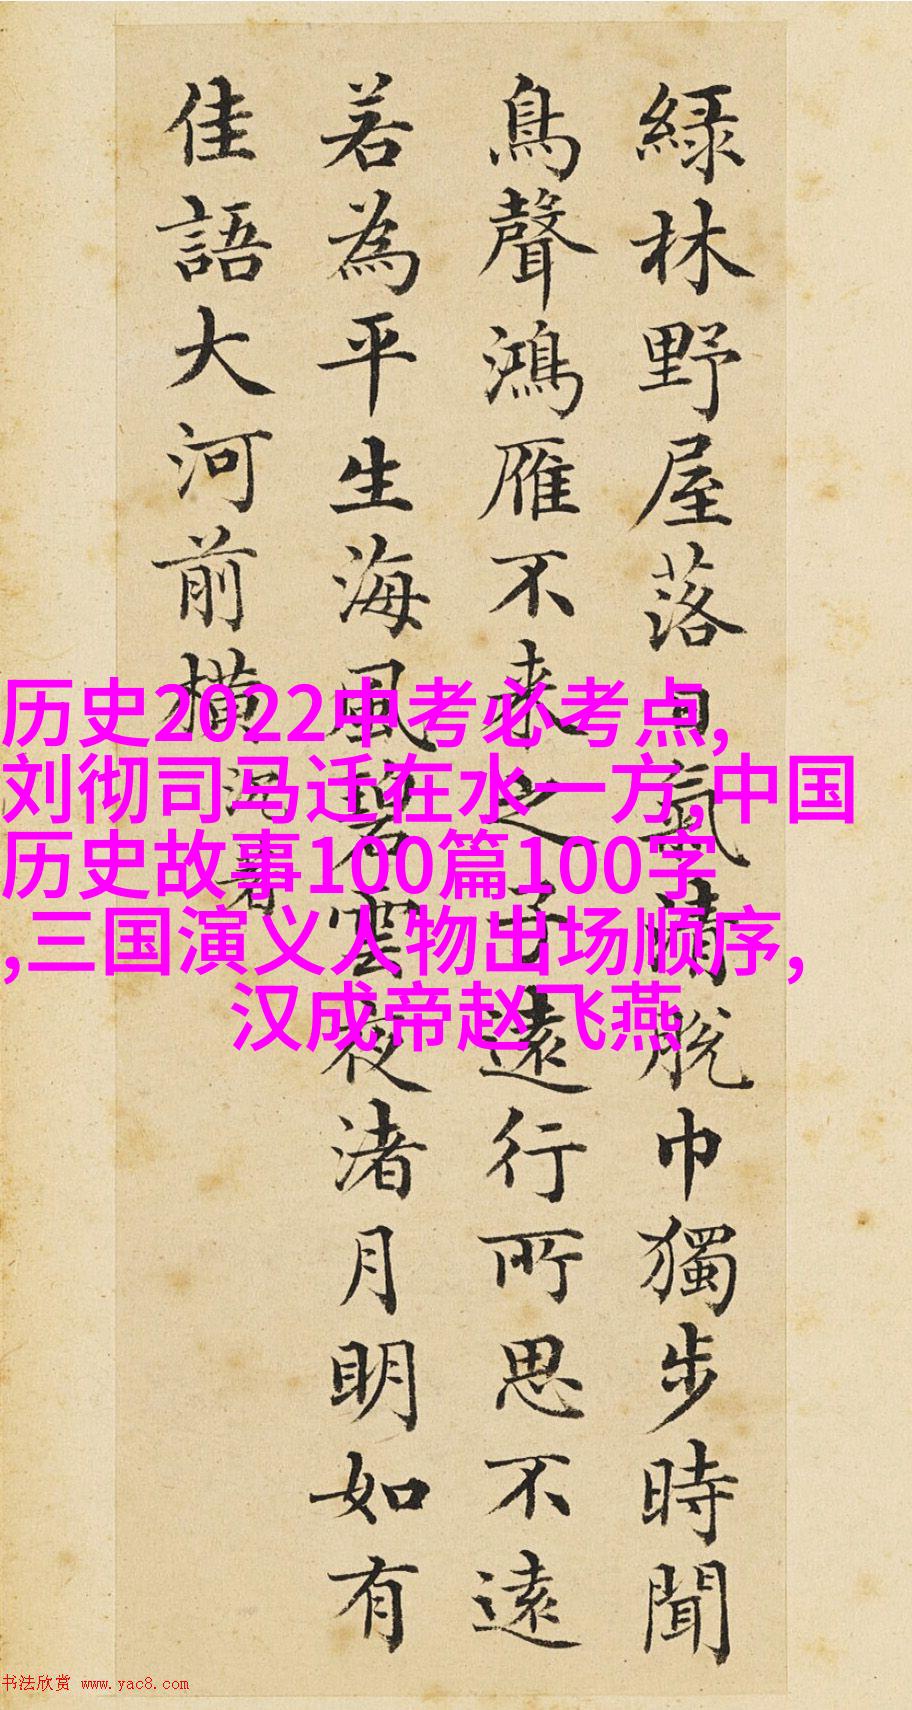 綠林野屋落日氣清脫巾獨步時聞
鳥聲鴻雁不來之子遠行所思不遠
若為平生海風碧雲夜渚月明如有
佳語大河前橫
历史2022中考必考点,
刘彻司马迁在水一方,中国
历史故事100篇100字
,三国演义人物出场顺序,
汉成帝赵飞燕
书法欣赏 www.yac8.com